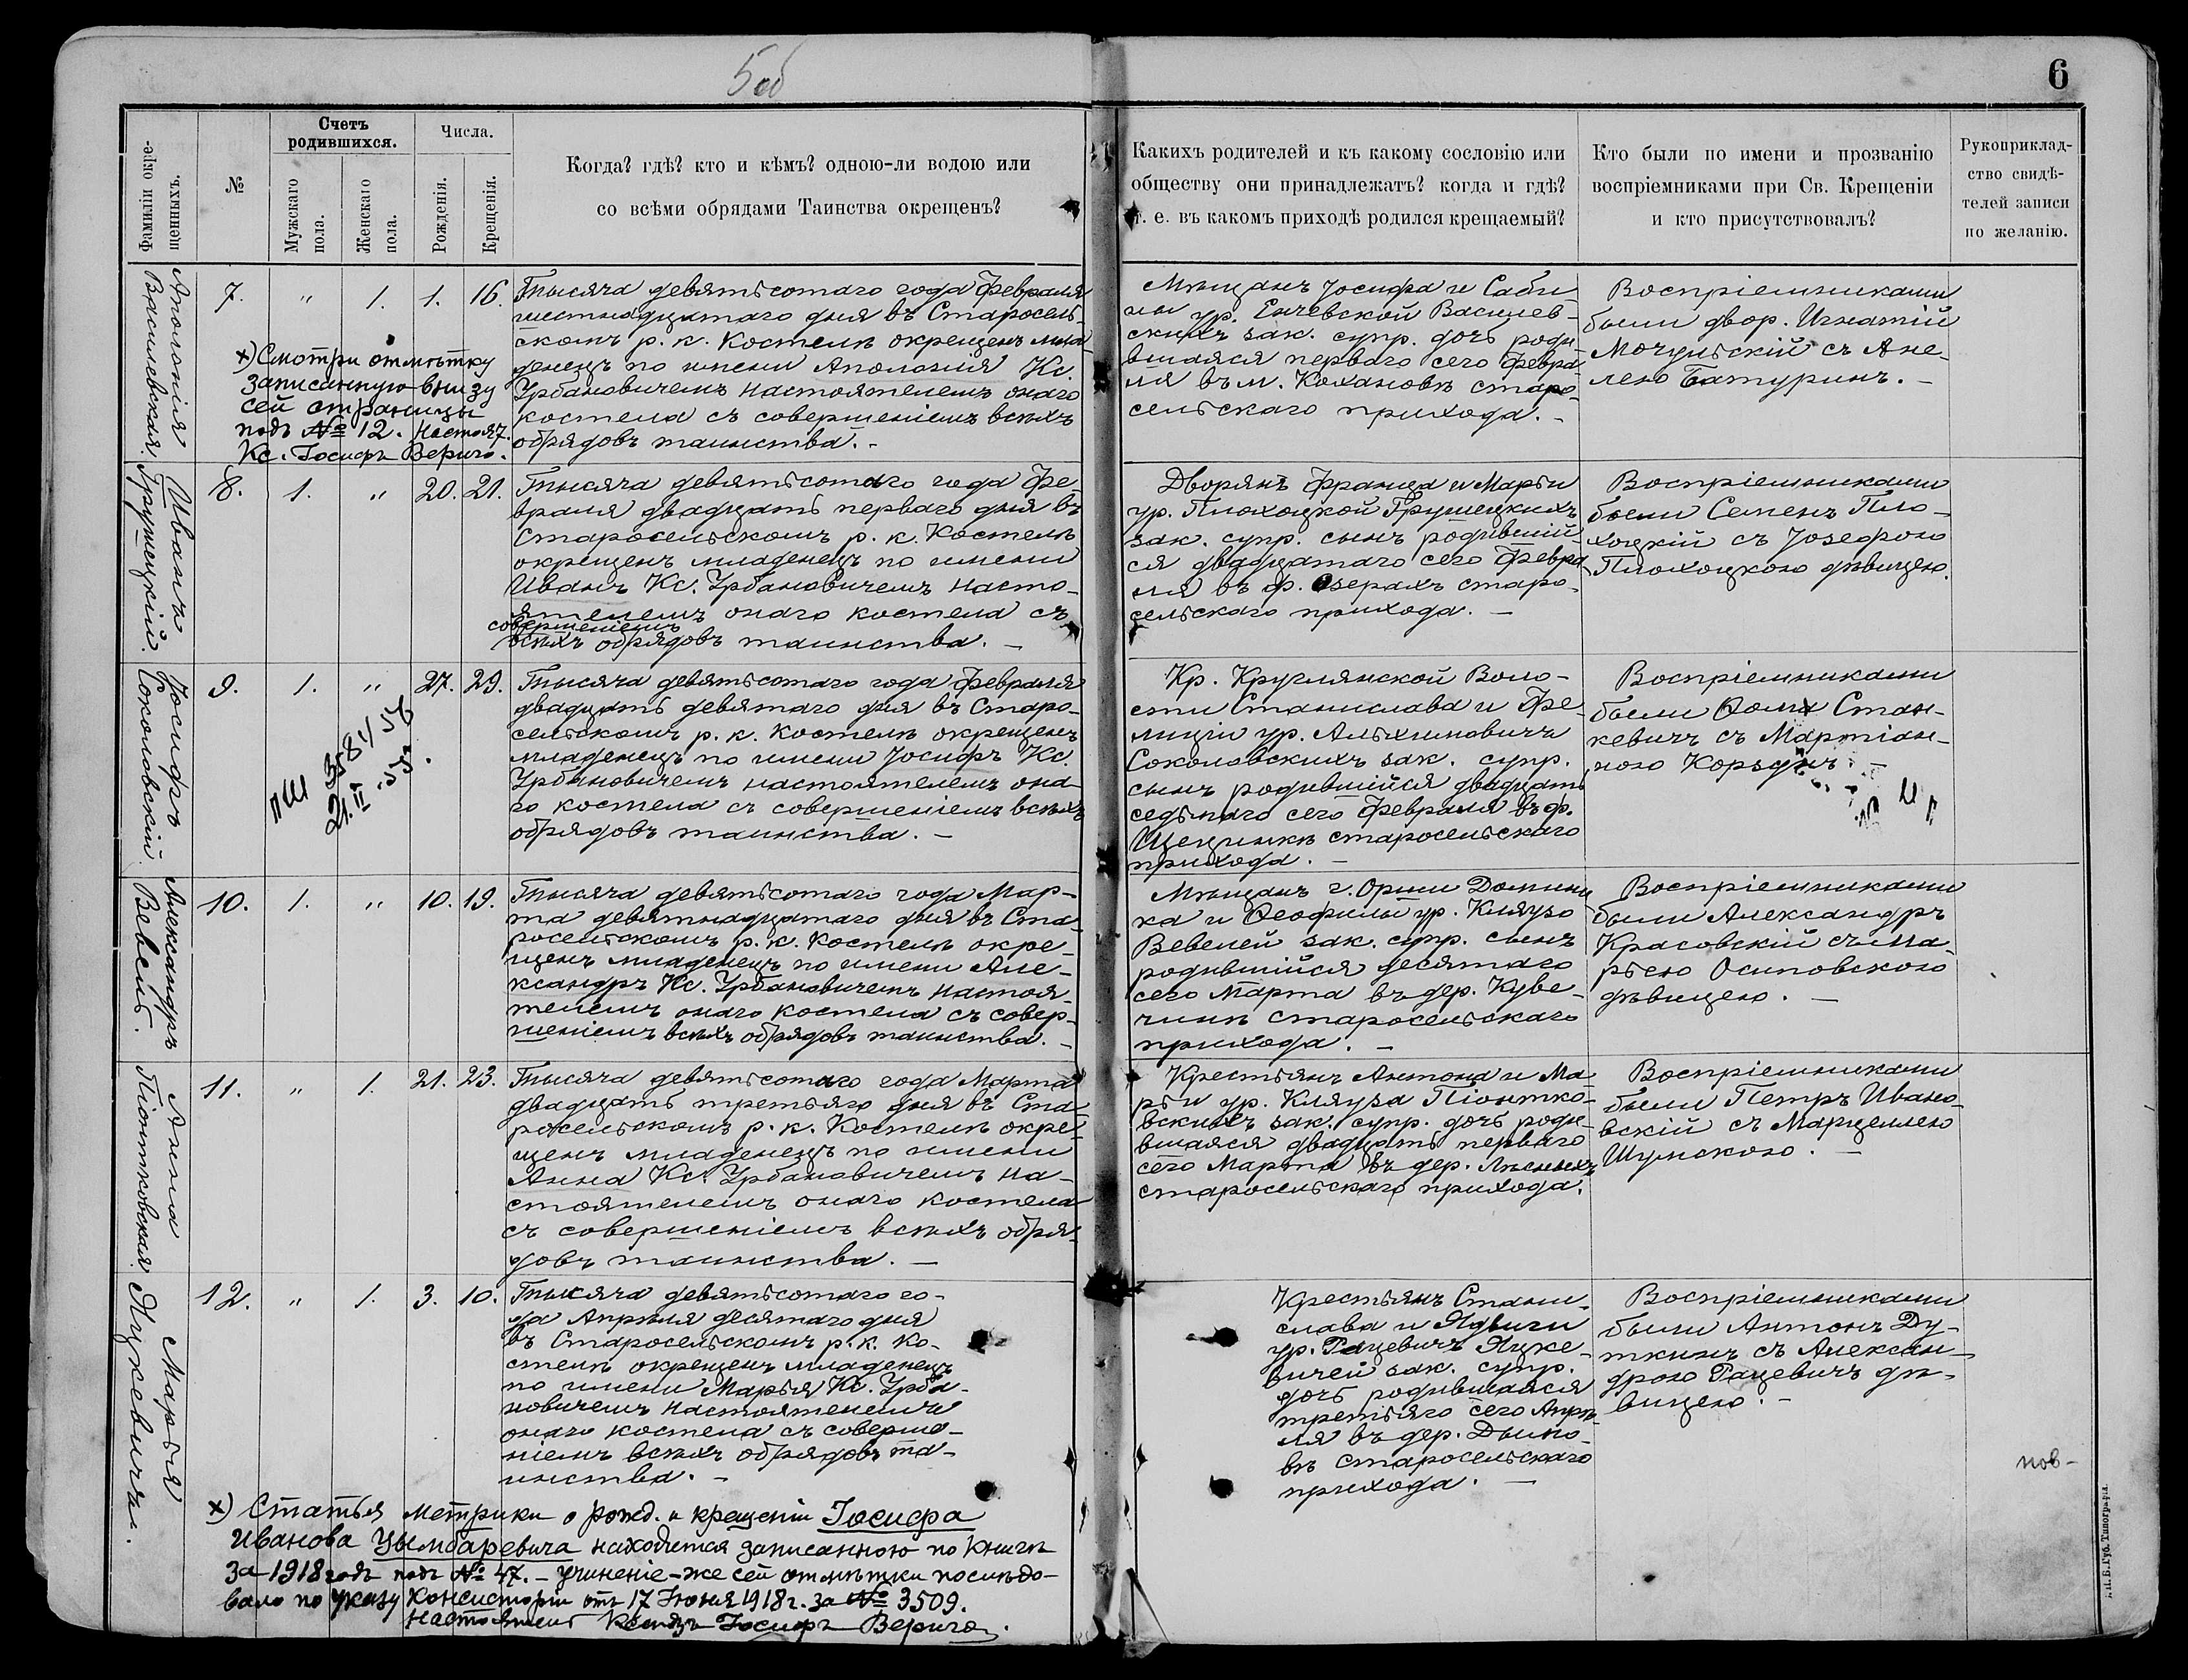 5об
6
Фамиліи окре-
щенныхъ.
№
Счетъ
родившихся.
Мужскаго
пола.
Женскаго
пола.
Числа.
Рожденія.
Крещенія.
Когда? гдѣ? кто и кѣмъ? одною-ли водою или
со всѣми обрядами Таинства окрещенъ?
Какихъ родителей и къ какому сословію или
обществу они принадлежатъ? когда и гдѣ?
т. е. въ какомъ приходѣ родился крещаемый?
Кто были по имени и прозванію
воспріемниками при Св. Крещеніи
и кто присутствовалъ?
Рукоприклад-
ство свидѣ-
телей записи
по желанію.
Аполонія
Василевская.
7. " 1. 1. 16.
х) Смотри отмѣтку
записанную внизу
сей страницы
подъ № 12. Настоят.
Кс. Іосифъ Верига.
Тысяча девятьсотаго года Февраля
шестнадцатаго дня въ Старосель-
скомъ р. к. Костелѣ окрещенъ мла-
денецъ по имени Аполонія Кс.
Урбановичемъ настоятелемъ онаго
костела съ совершеніемъ всѣхъ
обрядовъ таинства. -
Мѣщанъ Іосифа и Саби-
ны ур. Енчевской Василев-
скихъ зак. супр. дочь роди-
вшаяся перваго сего Февра-
ля въ м. Кохановѣ старо-
сельскаго прихода. -
Воспріемниками
были двор. Игнатій
Мочульскій съ Ане-
лею Батуринъ. -
Иванъ
Грушецкій.
8. 1. " 20. 21.
Тысяча девятьсотаго года Фе-
враля двадцать перваго дня въ
Старосельскомъ р. к. Костелѣ
окрещенъ младенецъ по имени
Иванъ Кс. Урбановичемъ насто-
ятелемъ онаго костела съ
совершеніемъ
всѣхъ обрядовъ таинства. -
Дворянъ Франца и Марьи
ур. Плохоцкой Грушецкихъ
зак. супр. сынъ родившій-
ся двадцатаго сего Февра-
ля въ ф. Озерахъ старо-
сельскаго прихода. -
Воспріемниками
были Семенъ Пло-
хоцкій съ Іозефою
Плохоцкою дѣвицею.
Іосифъ
Соколовскій.
9. 1. " 27. 29.
21.II.55.
Тысяча девятьсотаго года Февраля
двадцать девятаго дня въ Старо-
сельскомъ р. к. Костелѣ окрещенъ
младенецъ по имени Іосифъ Кс.
Урбановичемъ настоятелемъ она-
го костела съ совершеніемъ всѣхъ
обрядовъ таинства. -
Кр. Круглянской Воло-
сти Станислава и Фе-
лиціи ур. Альхимовичъ
Соколовскихъ зак. супр.
сынъ родившійся двадцать
седьмаго сего Февраля въ ф.
Щецинкѣ старосельскаго
прихода. -
Воспріемниками
были Ѳома Стан-
кевичъ съ Мартіан-
ною Корзунъ. -
Александръ
Вевель.
10. 1. " 10. 19.
Тысяча девятьсотаго года Мар-
та девятнадцатаго дня въ Ста-
росельскомъ р. к. Костелѣ окре-
щенъ младенецъ по имени Але-
ксандръ Кс. Урбановичемъ настоя-
телемъ онаго костела съ совер-
шеніемъ всѣхъ обрядовъ таинства. -
Мѣщанъ г. Орши Домини-
ка и Ѳеофилы ур. Кляузо
Вевелей зак. супр. сынъ
родившійся десятаго
сего Марта въ дер. Куве-
чинѣ старосельскаго
прихода. -
Воспріемниками
были Александръ
Красовскій съ Ма-
рьею Осиповскою
дѣвицею. -
Анна
Піотковская.
11. " 1. 21. 23.
Тысяча девятьсотаго года Марта
двадцать третьяго дня въ Ста-
росельскомъ р. к. Костелѣ окре-
щенъ младенецъ по имени
Анна Кс. Урбановичемъ на-
стоятелемъ онаго костела
съ совершеніемъ всѣхъ обря-
довъ таинства. -
Крестьянъ Антона и Ма-
рьи ур. Кляуза Піонтко-
вскихъ зак. супр. дочь роди-
вшаяся двадцать перваго
сего Марта въ дер. Лѣсныхъ
старосельскаго прихода.
Воспріемниками
были Петръ Ивано-
вскій съ Марцеллею
Шумскою. -
Марья
Яцкевичъ.
12. " 1. 3. 10.
Тысяча девятьсотаго го-
да Апрѣля десятаго дня
въ Старосельскомъ р. к. Ко-
стелѣ окрещенъ младенецъ
по имени Марья Кс. Урба-
новичемъ настоятелемъ
онаго костела съ соверше-
ніемъ всѣхъ обрядовъ та-
инства. -
Крестьянъ Стани-
слава и Ядвиги
ур. Рацевичъ Яцке-
вичей зак. супр.
дочь родившаяся
третьяго сего Апрѣ-
ля въ дер. Дымо-
вѣ старосельскаго
прихода. -
Воспріемниками
были Антонъ Ду-
ткинъ съ Алексан-
дрою Рацевичъ дѣ-
вицею. -
х) Статья метрики о рожд. и крещеніи Іосифа
Иванова Цымбаревича находится записанною по книгѣ
за 1918 годъ подъ № 47. - Учиненіе-же сей отмѣтки послѣдо-
вало по указу Консисторіи отъ 17 Іюня 1918 г. за № 3509.
Настоятель Ксендзъ Іосифъ Верига.